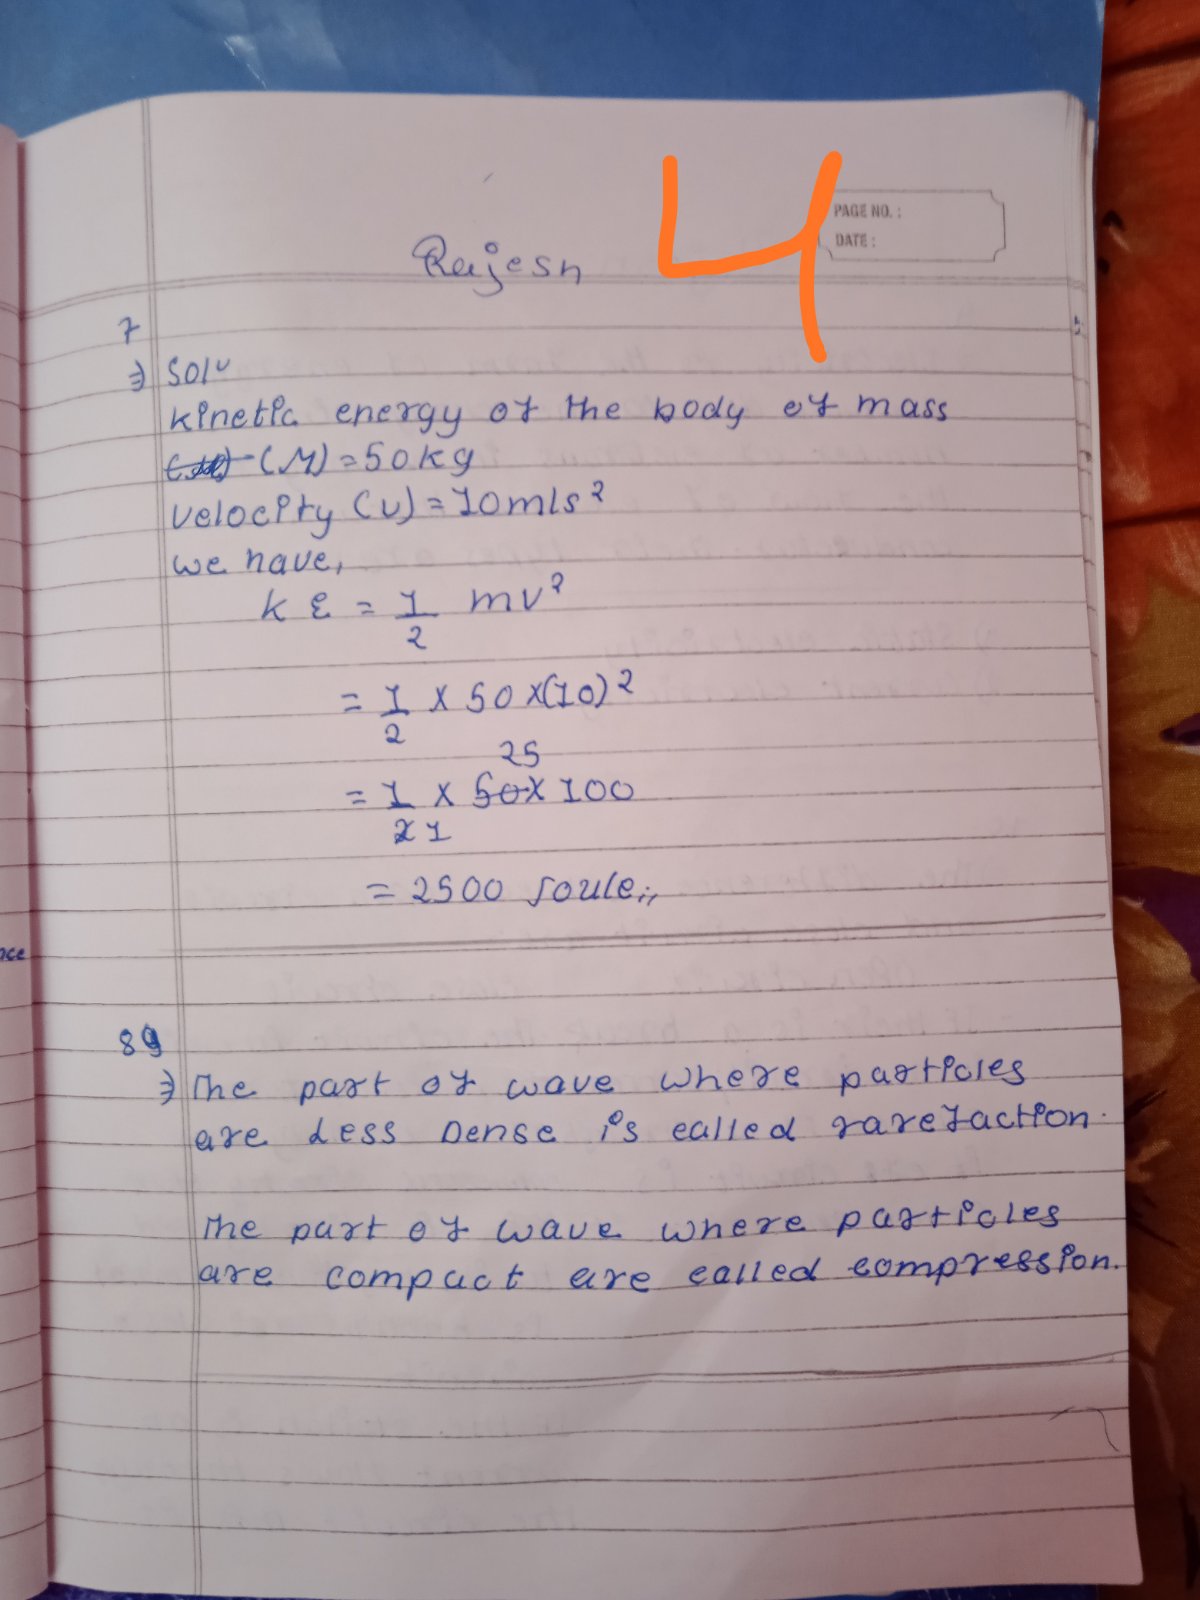 4
PAGE NO. :
DATE :
Rajesh
7
⇒ Solu
kinetic energy of the body of mass
(M) = 50kg
velocity (v) = 10m/s²
we have,
KE = 1/2 mv²
= 1/2 x 50 x(10)²
25
= 1/2 x 50 x 100
1
= 2500 Joule,,
89
⇒ The part of wave where particles
are Less Dense is called rarefaction.
The part of wave where particles
are compact are called compression.
nce